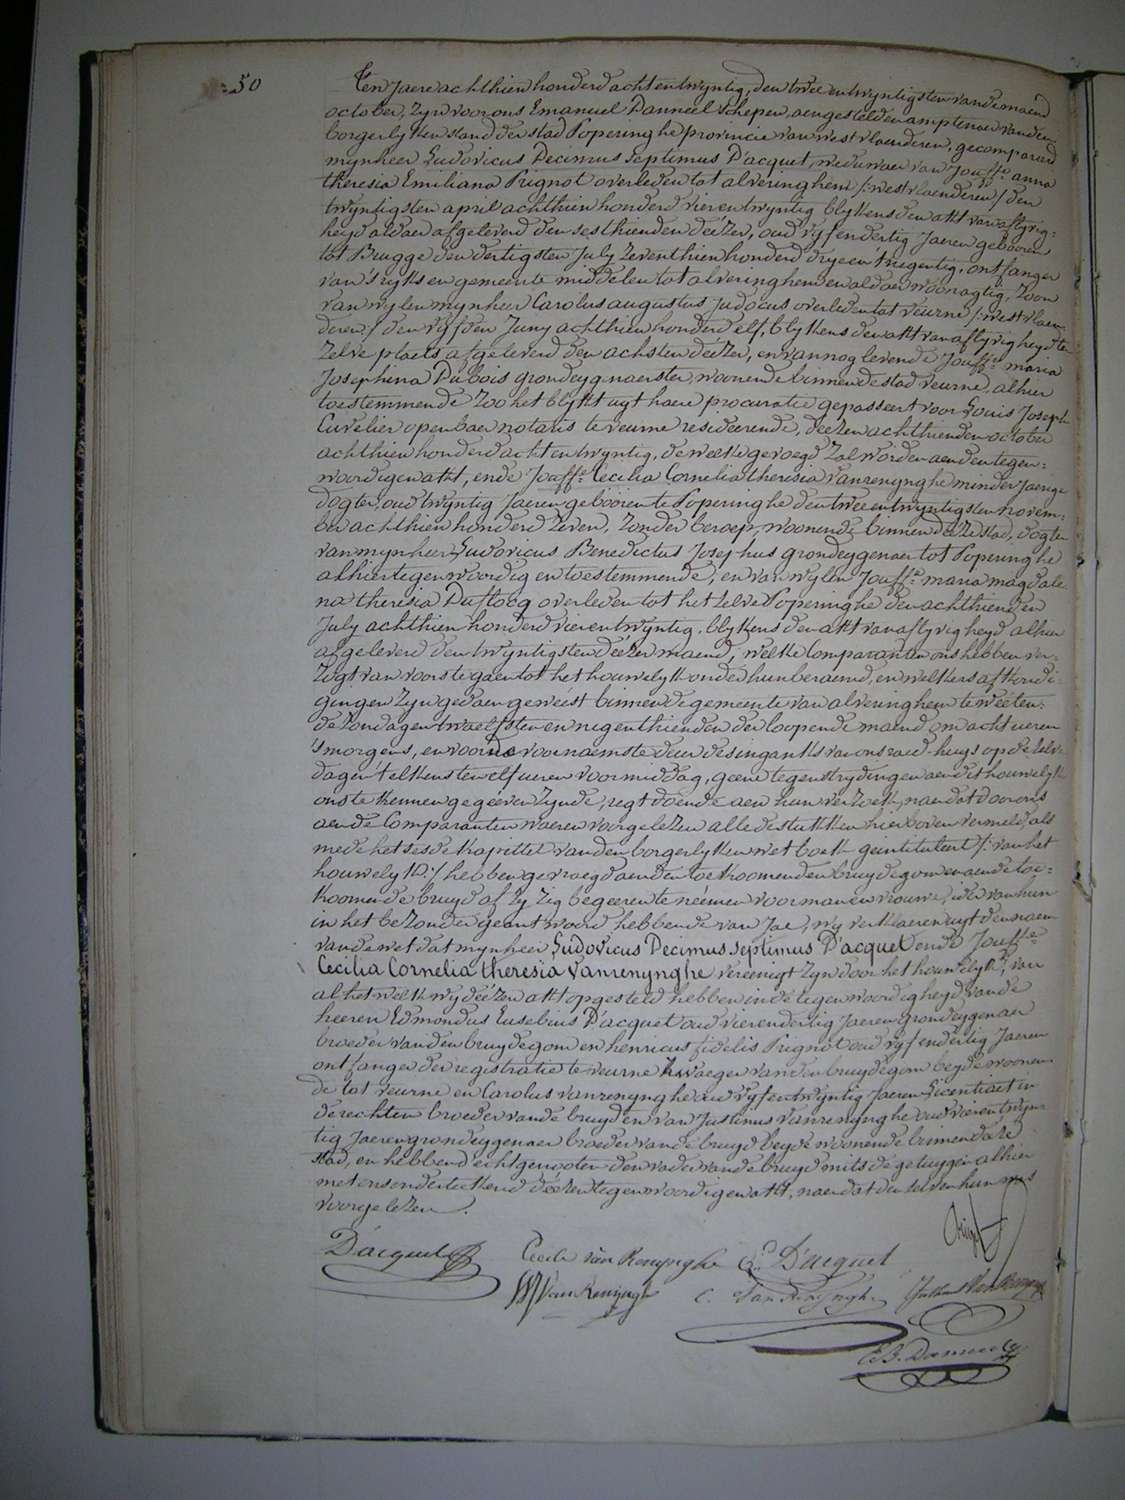 50
Ten jaere achthien honderd acht en twyntig, den twee en twyntigsten van de maend
october, zyn voor ons Emanuel Danneel schepen, aengestelden amptenaer van den
borgerlyken stand der stad Poperinghe provincie van westvlaenderen, gecompareerd
mynheer Ludovicus Decimus Septimus D'acquet, weduwaer van Jouffe. anna
theresia Emiliana Prignot overleden tot alveringhem /: westvlaenderen / den
twyntigsten april achthien honderd vier en twyntig blykens den akt van aflyvig:
heyd aldaer afgeleverd den sesthienden deézer, oud vyf en dertig Jaeren gebooren
tot Brugge den dertigsten July zeventhien honderd drye en 'tnegentig, ontfanger
van s'ryks en gemeente middelen tot alveringhem en aldaer woonagtig, zoon
van wylen mynheer Carolus augustus judocus overleden tot veurne /: westvlaen-
deren / den vyfden Juny achthien honderd elf, blykens den akt van aflyvigheyd ter
zelve plaets afgeleverd den achsten deézer, en van nog levende Jouffe. maria
Josephina Dubois grondeygenaerster, woonende binnen de stad veurne, alhier
toestemmende zoo het blykt uyt haere procuratie gepasseert voor Louis Joseph
Cuvelier openbaer notaris te veurne resideerende, deézen achthienden october
achthien honderd acht en twyntig, de welke gevoegd zal worden aen den tegen:
woordigen akt, ende Jouffe. Cecilia Cornelia theresia vanrenynghe minderjaerige
dogter, oud twyntig Jaeren gebooren te Poperinghe den twee en twyntigsten novem:
ber achthien honderd zeven, zonder beroep, woonende binnen deéze stad, dogter
van mynheer Ludovicus Benedictus Josephus grondeygenaer tot Poperinghe
alhier tegenwoordig en toestemmende, en van wylen Jouffe. maria magdale
na theresia Duflocq overleden tot het zelve Poperinghe den achthienden
July achthien honderd vier en twyntig, blykens den akt van aflyvigheyd alhier
afgeleverd den twyntigsten deézer maend, welke Comparanten ons hebben ver-
zogt van voors te gaen tot het houwelyk onder hun beraemd, en welkers afkondi-
gingen zyn gedaen geweést binnen de gemeente van alveringhem te weéten:
de zondagen twaelfsten en negenthienden der loopende maend om acht ueren
s'morgens, en voor de voornaemste deur des ingankts van ons raed-huys op de zelve
dagen telkens ten elf ueren voormiddag, geene tegenstrydingen aen dit houwelyk
ons te kennen gegeéven zynde, regt doende aen hun verzoek, naer dat door ons
aen de Comparanten waeren voorgelezen alle de stukken hier boven vermeld, als
mede het sesde kapittel van den borgerlyken wet boek geintituleert /: van het
houwelyk :/ hebben gevraegd aen den toekoomenden bruydegom en aen de toe:
koomende bruyd of zy zig begeeren te néemen voor man en vrouwe, ider van hun
in het bezonder geantwoord hebbende van Jae, wy verklaeren uyt den naem
van de wet dat mynheer Ludovicus Decimus Septimus D'acquet ende Jouffe.
Cecilia Cornelia theresia Vanrenynghe vereenigt zyn door het houwelyk, van
al het welk wy deézen akt opgesteld hebben in de tegenwoordigheyd van de
heeren Edmondus Eusebius D'acquet oud vier en dertig Jaeren grondeygenaer
broeder van den bruydegom en henricus fidelis Prignot oud vyf en dertig Jaeren
ontfanger der registratie te veurne zwaeger van den bruydegom beyde woonen-
de tot veurne en Carolus vanrenynghe oud vyf en twyntig Jaeren Licentiaet in
de rechten broeder van de bruyd en van Justinus Vanrenynghe oud vier en twyn-
tig Jaeren grondeygenaer broeder van de bruyd beyde woonende binnen deze
stad, en hebben d'echtgenooten den vader van de bruyd mits de getuygen alhier
met ons onderteekend deézen tegenwoordigen akt, naer dat den zelven hun was
voorgelezen.
D'acquet
Cecile van Renynghe
E. D'acquet
Van Renynghe
C. Van Renynghe
Justin Van Renynghe
E.B. Danneel